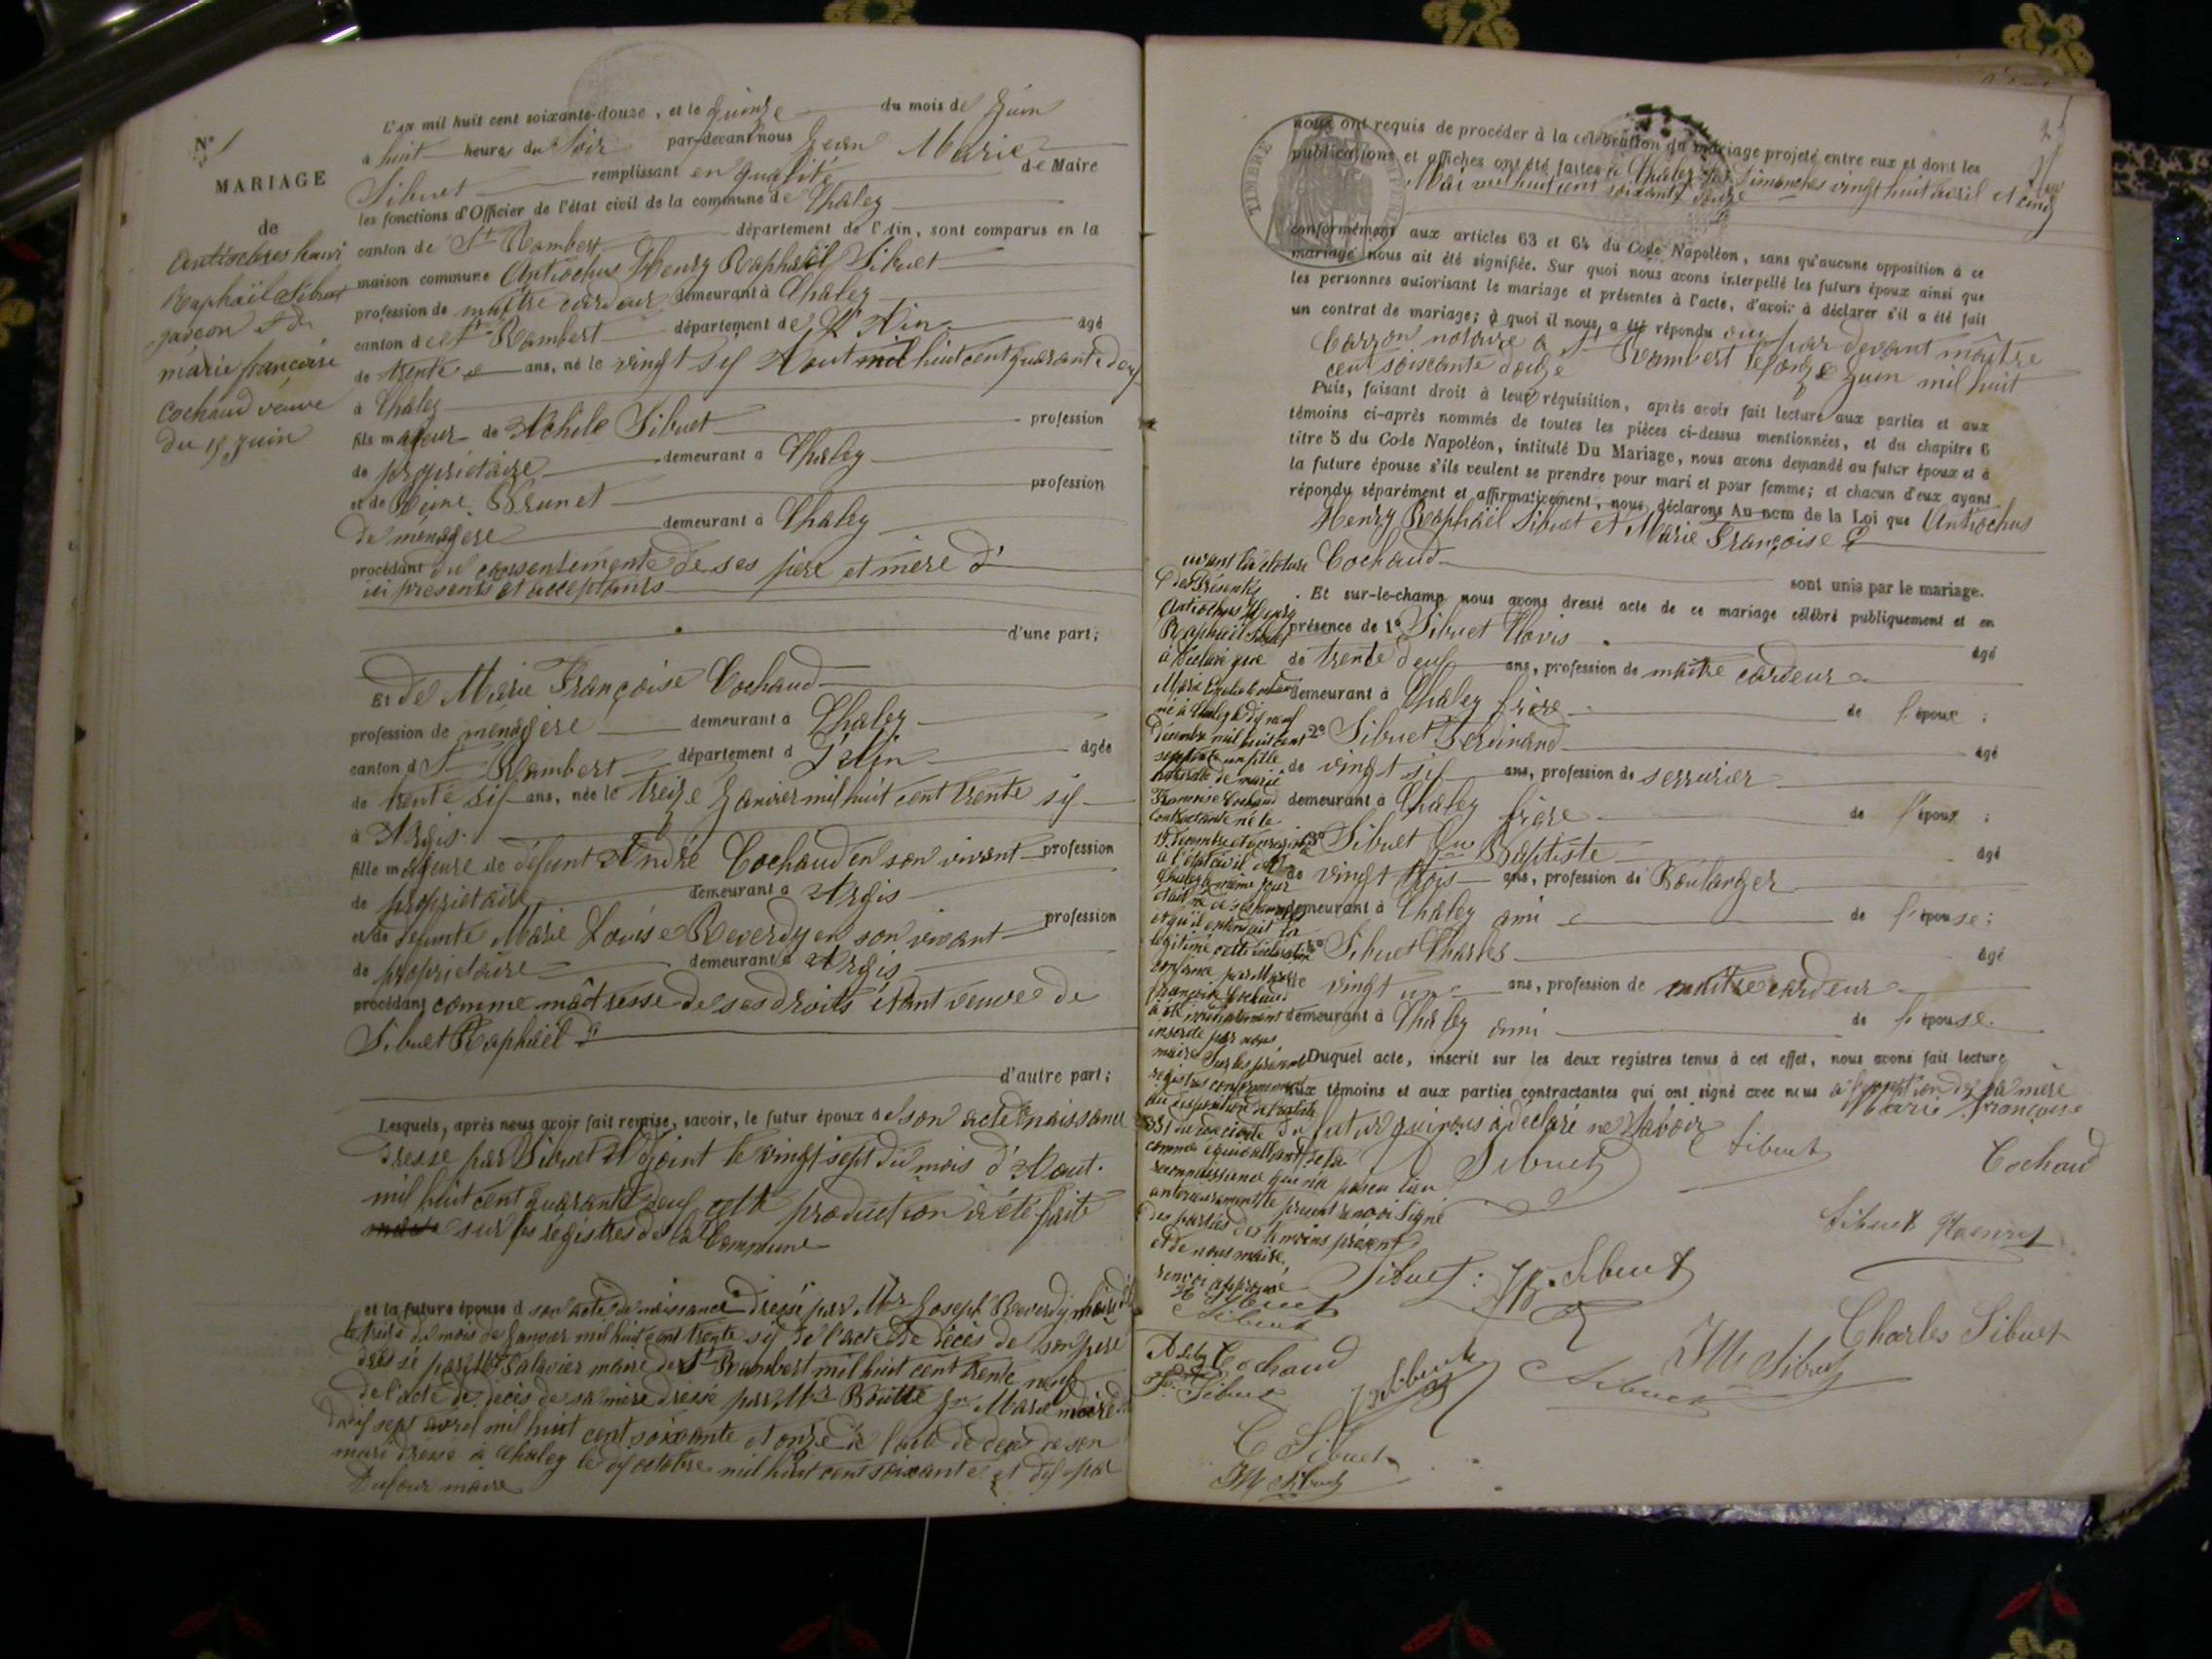 N° 1
MARIAGE
de
Antiochus henri
Raphaël Sibuet
garçon et de
marie françoise
cochaud veuve
du 15 juin
L'an mil huit cent soixante-douze, et le quinze du mois de Juin
à huit heures du Soir par-devant nous Jean Marie
Sibuet remplissant en qualité de Maire
les fonctions d'Officier de l'état civil de la commune de Chaley
canton de St Rambert département de l'Ain, sont comparus en la
maison commune Antiochus Henry Raphaël Sibuet
profession de maître cardeur demeurant à Chaley
canton de St Rambert département de l'Ain âgé
de trente ans, né le vingt six Aout mil huit cent quarante deux
à Chaley
fils majeur de Achile Sibuet profession
de propriétaire demeurant à Chaley
et de Reine Brunet profession
de ménagere demeurant à Chaley
procédant du consentement de ses père et mère
ici presents et acceptants
d'une part;
Et de Marie Françoise Cochaud
profession de ménagère demeurant à Chaley
canton d St Rambert département d l'Ain âgée
de trente six ans, née le treize Janvier mil huit cent trente six
à Argis
fille majeure de défunt André Cochaud en son vivant profession
de propriétaire demeurant à Argis
et de defunte Marie Louise Reverdy en son vivant profession
de propriétaire demeurant à Argis
procédant comme maîtresse de ses droits étant veuve de
Sibuet Raphaël
d'autre part;
Lesquels, après nous avoir fait remise, savoir, le futur époux de son acte de naissance
Dressé par Sibuet Adjoint le vingt sept du mois d'Aout
mil huit cent quarante deux cette production a été faite
sur les régistres de la Commune
et la future épouse d son acte de naissance Dressé par Mr Joseph Reverdy maire
le treize du mois de Janvier mil huit cent trente six de l'acte de décès de son père
dressé par Mr maire de St Rambert mil huit cent trente neuf
de l'acte de décès de sa mère dressé par Mr Jn Marie maire
dix sept avril mil huit cent soixante et onze de l'acte de décès de son
mari dressé à Chaley le dix octobre mil huit cent soixante et dix par
Dufour maire
nous ont requis de procéder à la célébration du mariage projeté entre eux et dont les
publications et affiches ont été faites à Chaley les dimanches vingt huit avril et cinq
Mai mil huit cent soixante douze
conformément aux articles 63 et 64 du Code Napoléon, sans qu'aucune opposition à ce
mariage nous ait été signifiée. Sur quoi nous avons interpellé les futurs époux ainsi que
les personnes autorisant le mariage et présentes à l'acte, d'avoir à déclarer s'il a été fait
un contrat de mariage; à quoi il nous a été répondu oui par devant maître
Carron notaire à St Rambert le onze Juin mil huit
cent soixante douze
Puis, faisant droit à leur réquisition, après avoir fait lecture aux parties et aux
témoins ci-après nommés de toutes les pièces ci-dessus mentionnées, et du chapitre 6
titre 5 du Code Napoléon, intitulé Du Mariage, nous avons demandé au futur époux et à
la future épouse s'ils veulent se prendre pour mari et pour femme; et chacun d'eux ayant
répondu séparément et affirmativement, nous déclarons Au nom de la Loi que Antiochus
Henry Raphaël Sibuet et Marie Françoise
Cochaud
sont unis par le mariage.
Et sur-le-champ nous avons dressé acte de ce mariage célébré publiquement et en
présence de 1° Sibuet Clovis âgé
de trente deux ans, profession de maître cardeur
demeurant à Chaley frère de l'époux ;
2° Sibuet Ferdinand âgé
de vingt six ans, profession de serrurier
demeurant à Chaley frère de l'époux ;
3° Sibuet Jn Baptiste âgé
de vingt trois ans, profession de Boulanger
demeurant à Chaley ami de l'épouse;
4° Sibuet Charles âgé
de vingt un ans, profession de maître cardeur
demeurant à Chaley ami de l'épouse.
Duquel acte, inscrit sur les deux registres tenus à cet effet, nous avons fait lecture
aux témoins et aux parties contractantes qui ont signé avec nous à l'exception de la mère
du futur qui nous a déclaré ne savoir
Marie Françoise
Cochaud
Sibuet
Sibuet
Sibuet Henry
Sibuet
Sibuet
Charles Sibuet
JM Sibuet
Sibuet
avant la cloture
des présentes
Antiochus Henry
Raphaël Sibuet
à déclaré que
Marie
né à Chaley le dix neuf
décembre mil huit cent
septante un fille
naturelle de marie
Françoise Cochaud
contractante né le
19 décembre et enregistré
à l'état civil de
Chaley le même jour
était né de
et qu'il entendait la
legitimé cette déclaration
confirmé par Marie
françoise Cochaud
à été
inserée par nous
maire Sur les présents
registres conformement
aux disposition de l'article
331 du code civile
comme équivallant de la
reconnaissance qui na pas eu lieu
anterieurement le present renvoi Signé
des parties des temoins présent
et de nous maire
renvoi approuvé
H Sibuet
Sibuet
Cochaud
Sibuet
Sibuet
C Sibuet
JM Sibuet
TIMBRE